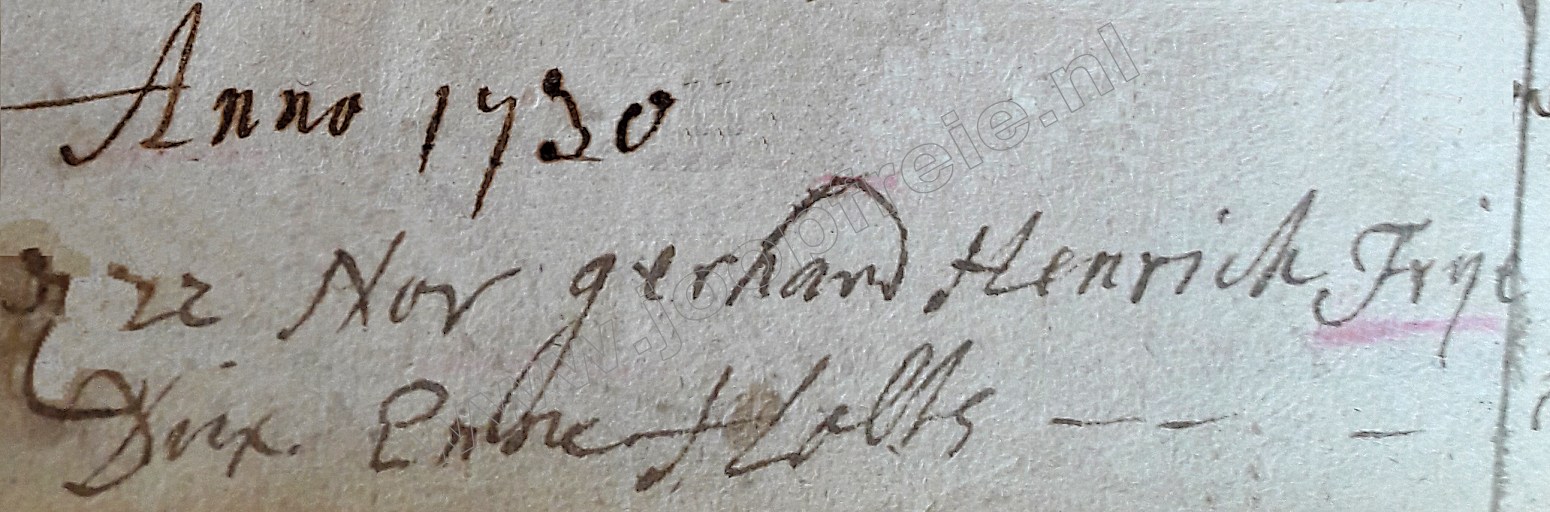 Anno 1730
22 Nov gerhard Henrich Frye
Dux. Enne Holtks — — —
www.jonpreie.nl